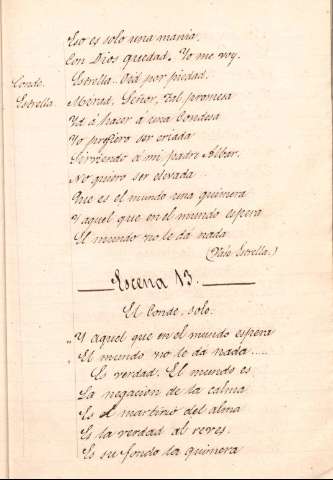 Eso es solo una mania.
Con Dios quedad. Yo me voy.
Conde. Estrella.. Oid por piedad.
Estrella. Mirad, Señor, tal promesa
Id á hacer á una Condesa
Yo prefiero ser criada
Sirviendo á mi padre Alber.
No quiero ser elevada
Que es el mundo una quimera
Y aquel que en el mundo espera
El mundo no le dá nada
(Vase Estrella.)
Escena 13.
El Conde, solo.
„Y aquel que en el mundo espera
„El mundo no le dá nada.....
Es verdad. El mundo es
La negacion de la calma
Es el martirio del alma
Es la verdad al reves.
Es su fondo la quimera